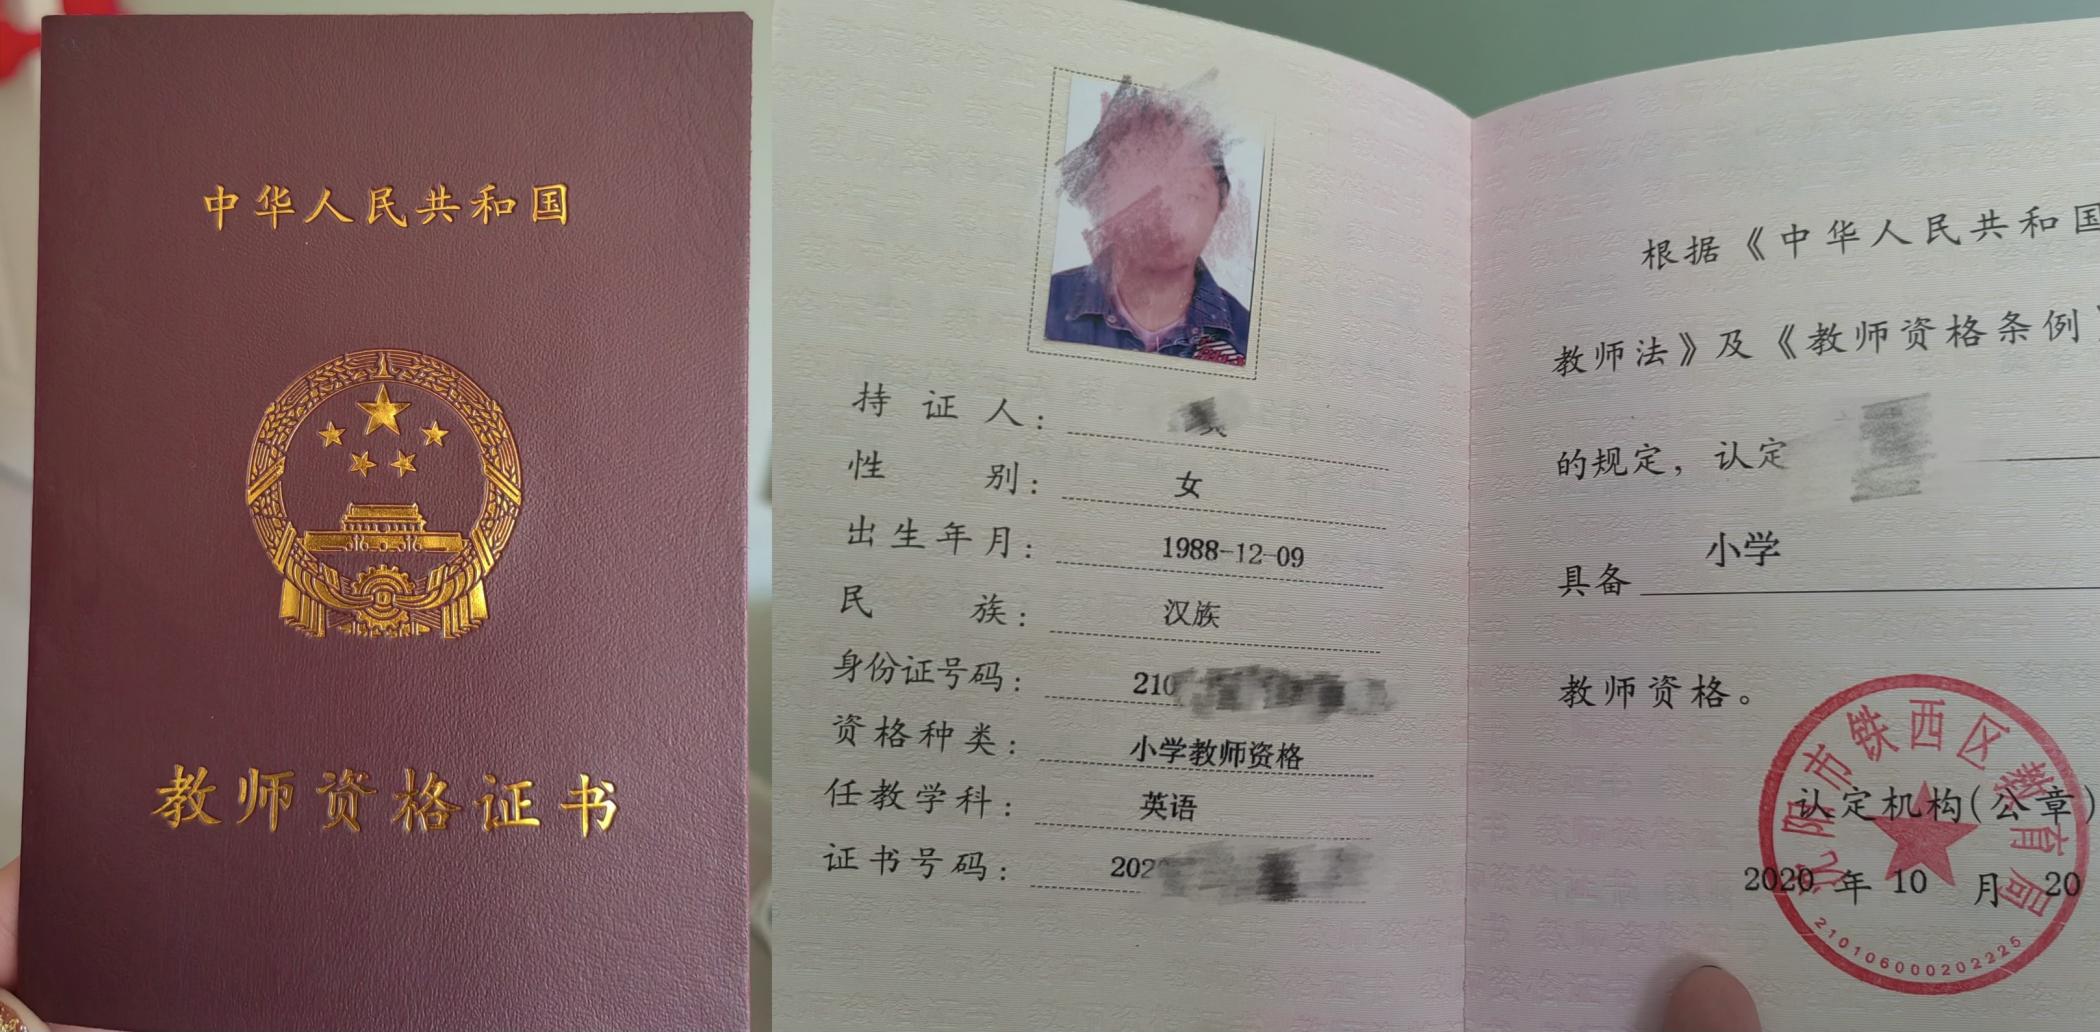 中华人民共和国
教师资格证书
持证人：
性别：女
出生年月：1988-12-09
民族：汉族
身份证号码：210
资格种类：小学教师资格
任教学科：英语
证书号码：202
根据《中华人民共和国
教师法》及《教师资格条例》
的规定，认定
具备 小学
教师资格。
沈阳市铁西区教育局
认定机构(公章)
2020 年 10 月 20
2101060002022225